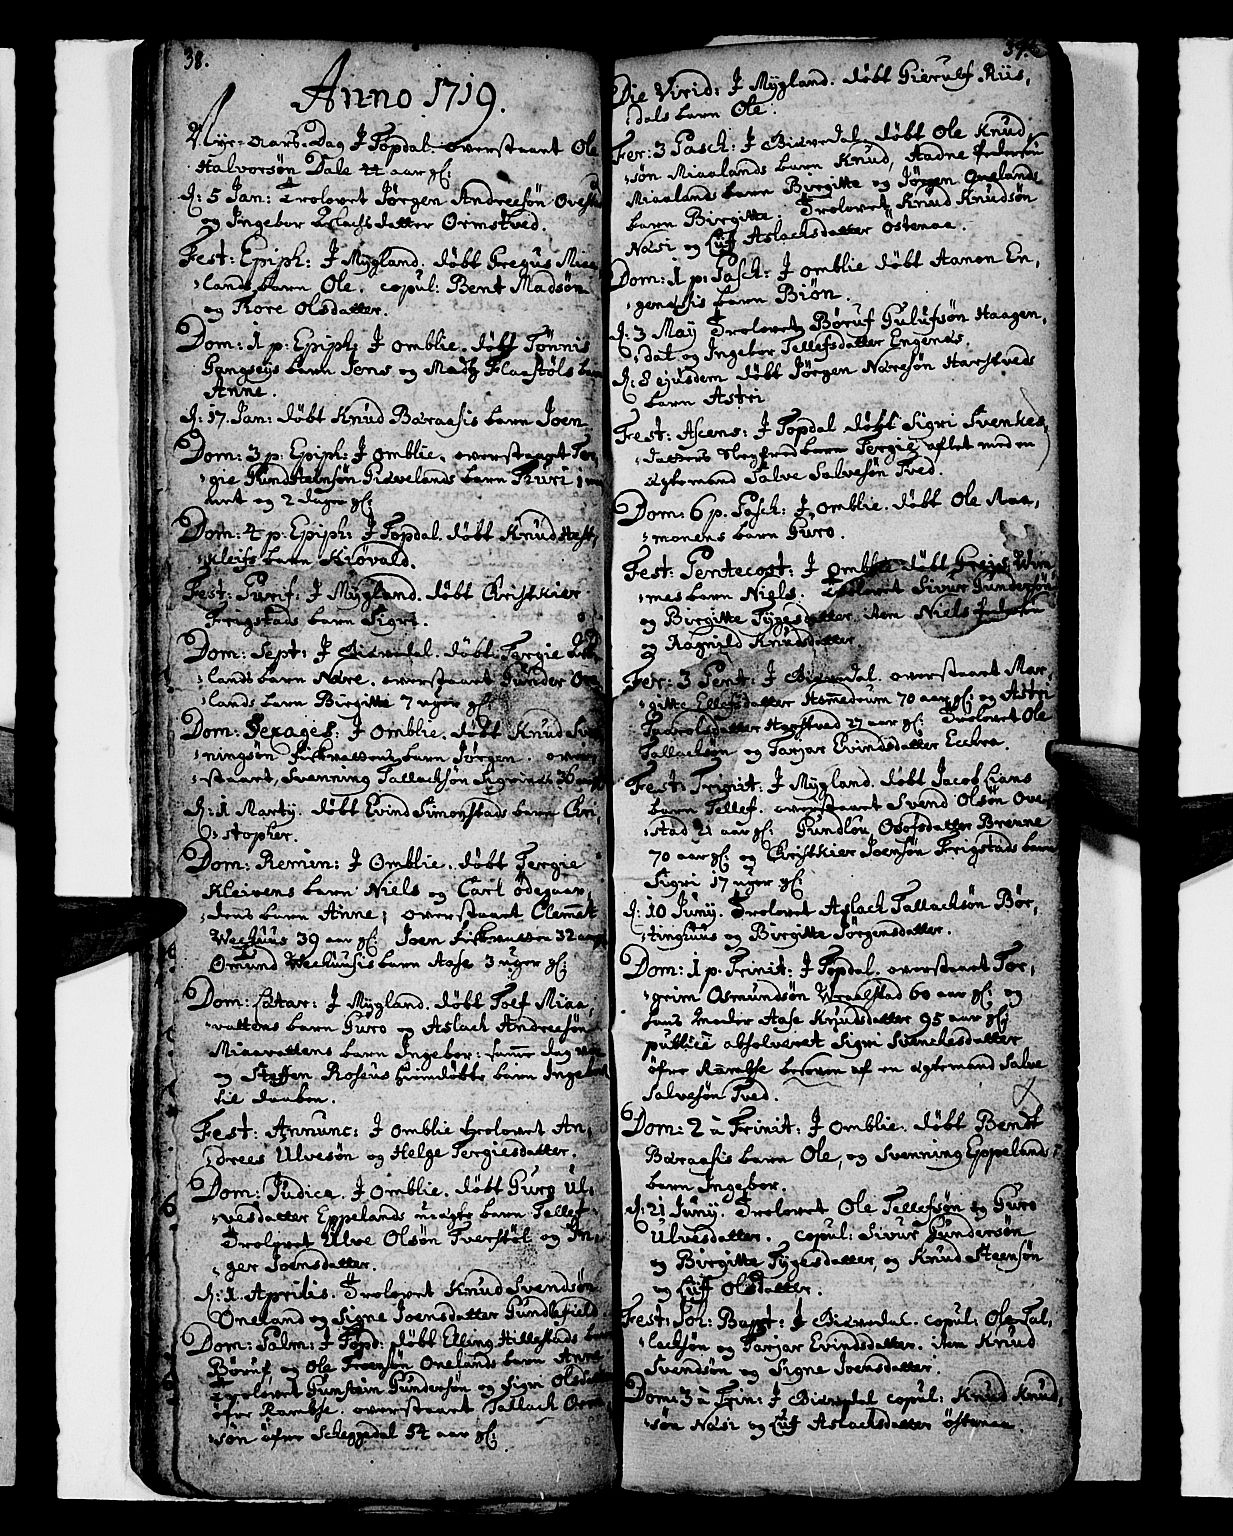 38.
Anno 1719.
Nye-Aars-Dag J Topdal. overstaaet Ole
Halvorsön Dale 44 aar gl:
d: 5 Jan: Trolovet Jörgen Andreesön
og Ingebor Aslachsdatter Ormstved.
Fest: Epiph: J Mygland. döbt Gregus Miaa-
lands barn Ole. copul: Bent Madsön
og Tore Olsdatter.
Dom: 1 p: Epiph: J Omblie. döbt Tönnis
Gangseys barn Jens og Madtz Flaastöls barn
Anne.
d: 17. Jan: döbt Knud Baraasis barn Joen.
Dom: 3 p: Epiph: J Omblie. overstaaet Ter-
gie Gundstensön Giövelands barn Thuri 1
og 2 dager gl:
Dom: 4 p: Epiph: J Topdal. döbt Knud
barn Kiövald.
Fest: Purif: J Mygland. döbt Christkier
Frigstads barn Sigri.
Dom: Sept: J Giövedal. döbt Tergie
lands barn Nære. overstaaet Gunder
lands barn Birgitte 7 uger gl:
Dom: Sexages: J Omblie. döbt Knud Sven-
ningsön Fiskvattens barn Jörgen.
staaet, Svenning Tallachsön 36
d: 1 Martij. döbt Evind Simonstads barn Chri-
stopher.
Dom: Remin: J Omblie. döbt Tergie
Kleivens barn Niels og Carl Ödegaar-
dens barn Anne; overstaaet Clemmet
Weehuus 39 aar gl: Joen Fiskvatten 32 aar
Omund Weehuusis barn Aase 3 uger gl:
Dom: Lætar: J Mygland. döbt Tolf Miaa-
vattens barn Guro og Aslach Andreesön
Miaavattens barn Ingebor: samme dag
og Steffen Roseus hiemdöbte barn Ingebor
til daaben.
Fest: Annunc: J Omblie trolovet An-
drees Ulvesön og Helge Tergiesdatter.
Dom: Judica. J Omblie. döbt Guro Ul-
vesdatter Eppelands uægte barn Tellef
Trolovet Ulve Olsön Tverstöl og In-
ger Joensdatter.
d: 1. Aprilis. Trolovet Knud Svendsön
Oneland og Signe Joensdatter Gundlefield.
Dom: Palm: J Topd: döbt Elling Hillestads barn
Böruf og Ole Onelands barn Anne
Trolovet Gunstein Gundersön og Sigri Olsdatter
öfre Ramse. overstaaet Tallach
sön öfre Scheggedal 54 aar gl:
39.
Die Virid: J Mygland. döbt Gierulf Riis-
dals barn Ole.
Fer: 3 Pasch: J Giövedal döbt Ole Knud-
sön Miaalands barn Knud, Aadne Pedersön
Miaalands barn Birgitte og Jörgen Onelands
barn Birgitte. Trolovet Knud Knudsön
Næsi og Liff Aslachsdatter Östenaa.
Dom: 1 p: Pasch: J Omblie döbt Aanon En-
genæsis barn Biön.
d: 3 May Trolovet Böruf Gulufsön Haagen-
dal og Ingebor Tellefsdatter Engenæs.
d: 8 ejusdem döbt Jörgen Næresön Harstveds
barn Astri
Fest: Ascens: J Topdal döbt Sigri Svenkes
datters slegfred barn Tergie aflet med en
ægtemand Salve Salvesön Tved.
Dom: 6 p. Pasch: J Omblie. döbt Ole Maa-
monens barn Guro.
Fest: Pentecost: J Omblie döbt Greis
mes barn Niels. Trolovet Sivur Gundersön
og Birgitte Tygesdatter, item Niels Pedersön
og Ragnild Knudsdatter
Fer: 3 Pent: J Giövedal. overstaaet Mar-
gitte Ellefsdatter Asmedrum 70 aar gl: og Astri
Taaroldsdatter Harstved 27 aar gl: Trolovet Ole
Tallachsön og Tarjer Evindsdatter Eechre.
Fest: Trinit: J Mygland. döbt Jacob Lians
barn Tellef. overstaaet Svend Olsön Ove-
stad 21 aar gl: Gundlou Olofsdatter Brenne
70 aar gl: og Christkier Joensön Frigstads barn
Sigri 17 uger gl:
d: 10 Junij. Trolovet Aslach Tallachsön Bör-
tinghuus og Birgitte Jörgensdatter.
Dom: 1 p: Trinit: J Topdal. overstaaet Tor-
grim Osmundsön Wraalstad 60 aar gl: og
hans moder Aase Knudsdatter 95 aar gl:
publicè absolveret Sigri Svenchesdatter
öfre Ramse besoven af en ægtemand Salve
Salvesön Tved.
Dom: 2 à Trinit: J Omblie. döbt Bendt
Baraasis barn Ole, og Svenning Eppelands
barn Ingebor.
d: 21 Junij. Trolovet Ole Tellefsön og Guro
Ulvesdatter. copul: Sivur Gundersön
og Birgitte Tygesdatter, og Knud Steensön
og Liff Olsdatter.
Fest: Joh: Bapt: J Giövedal. copul: Ole Tal-
lachsön og Tarjer Evindsdatter. item Knud
Svendsön og Signe Joensdatter.
Dom: 3 à Trin: J Giövedal copul: Knud Knud-
sön Næsi og Liff Aslachsdatter Östenaa